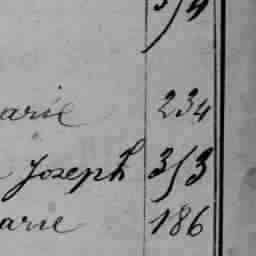 354
arie 234
Joseph 353
arie 186